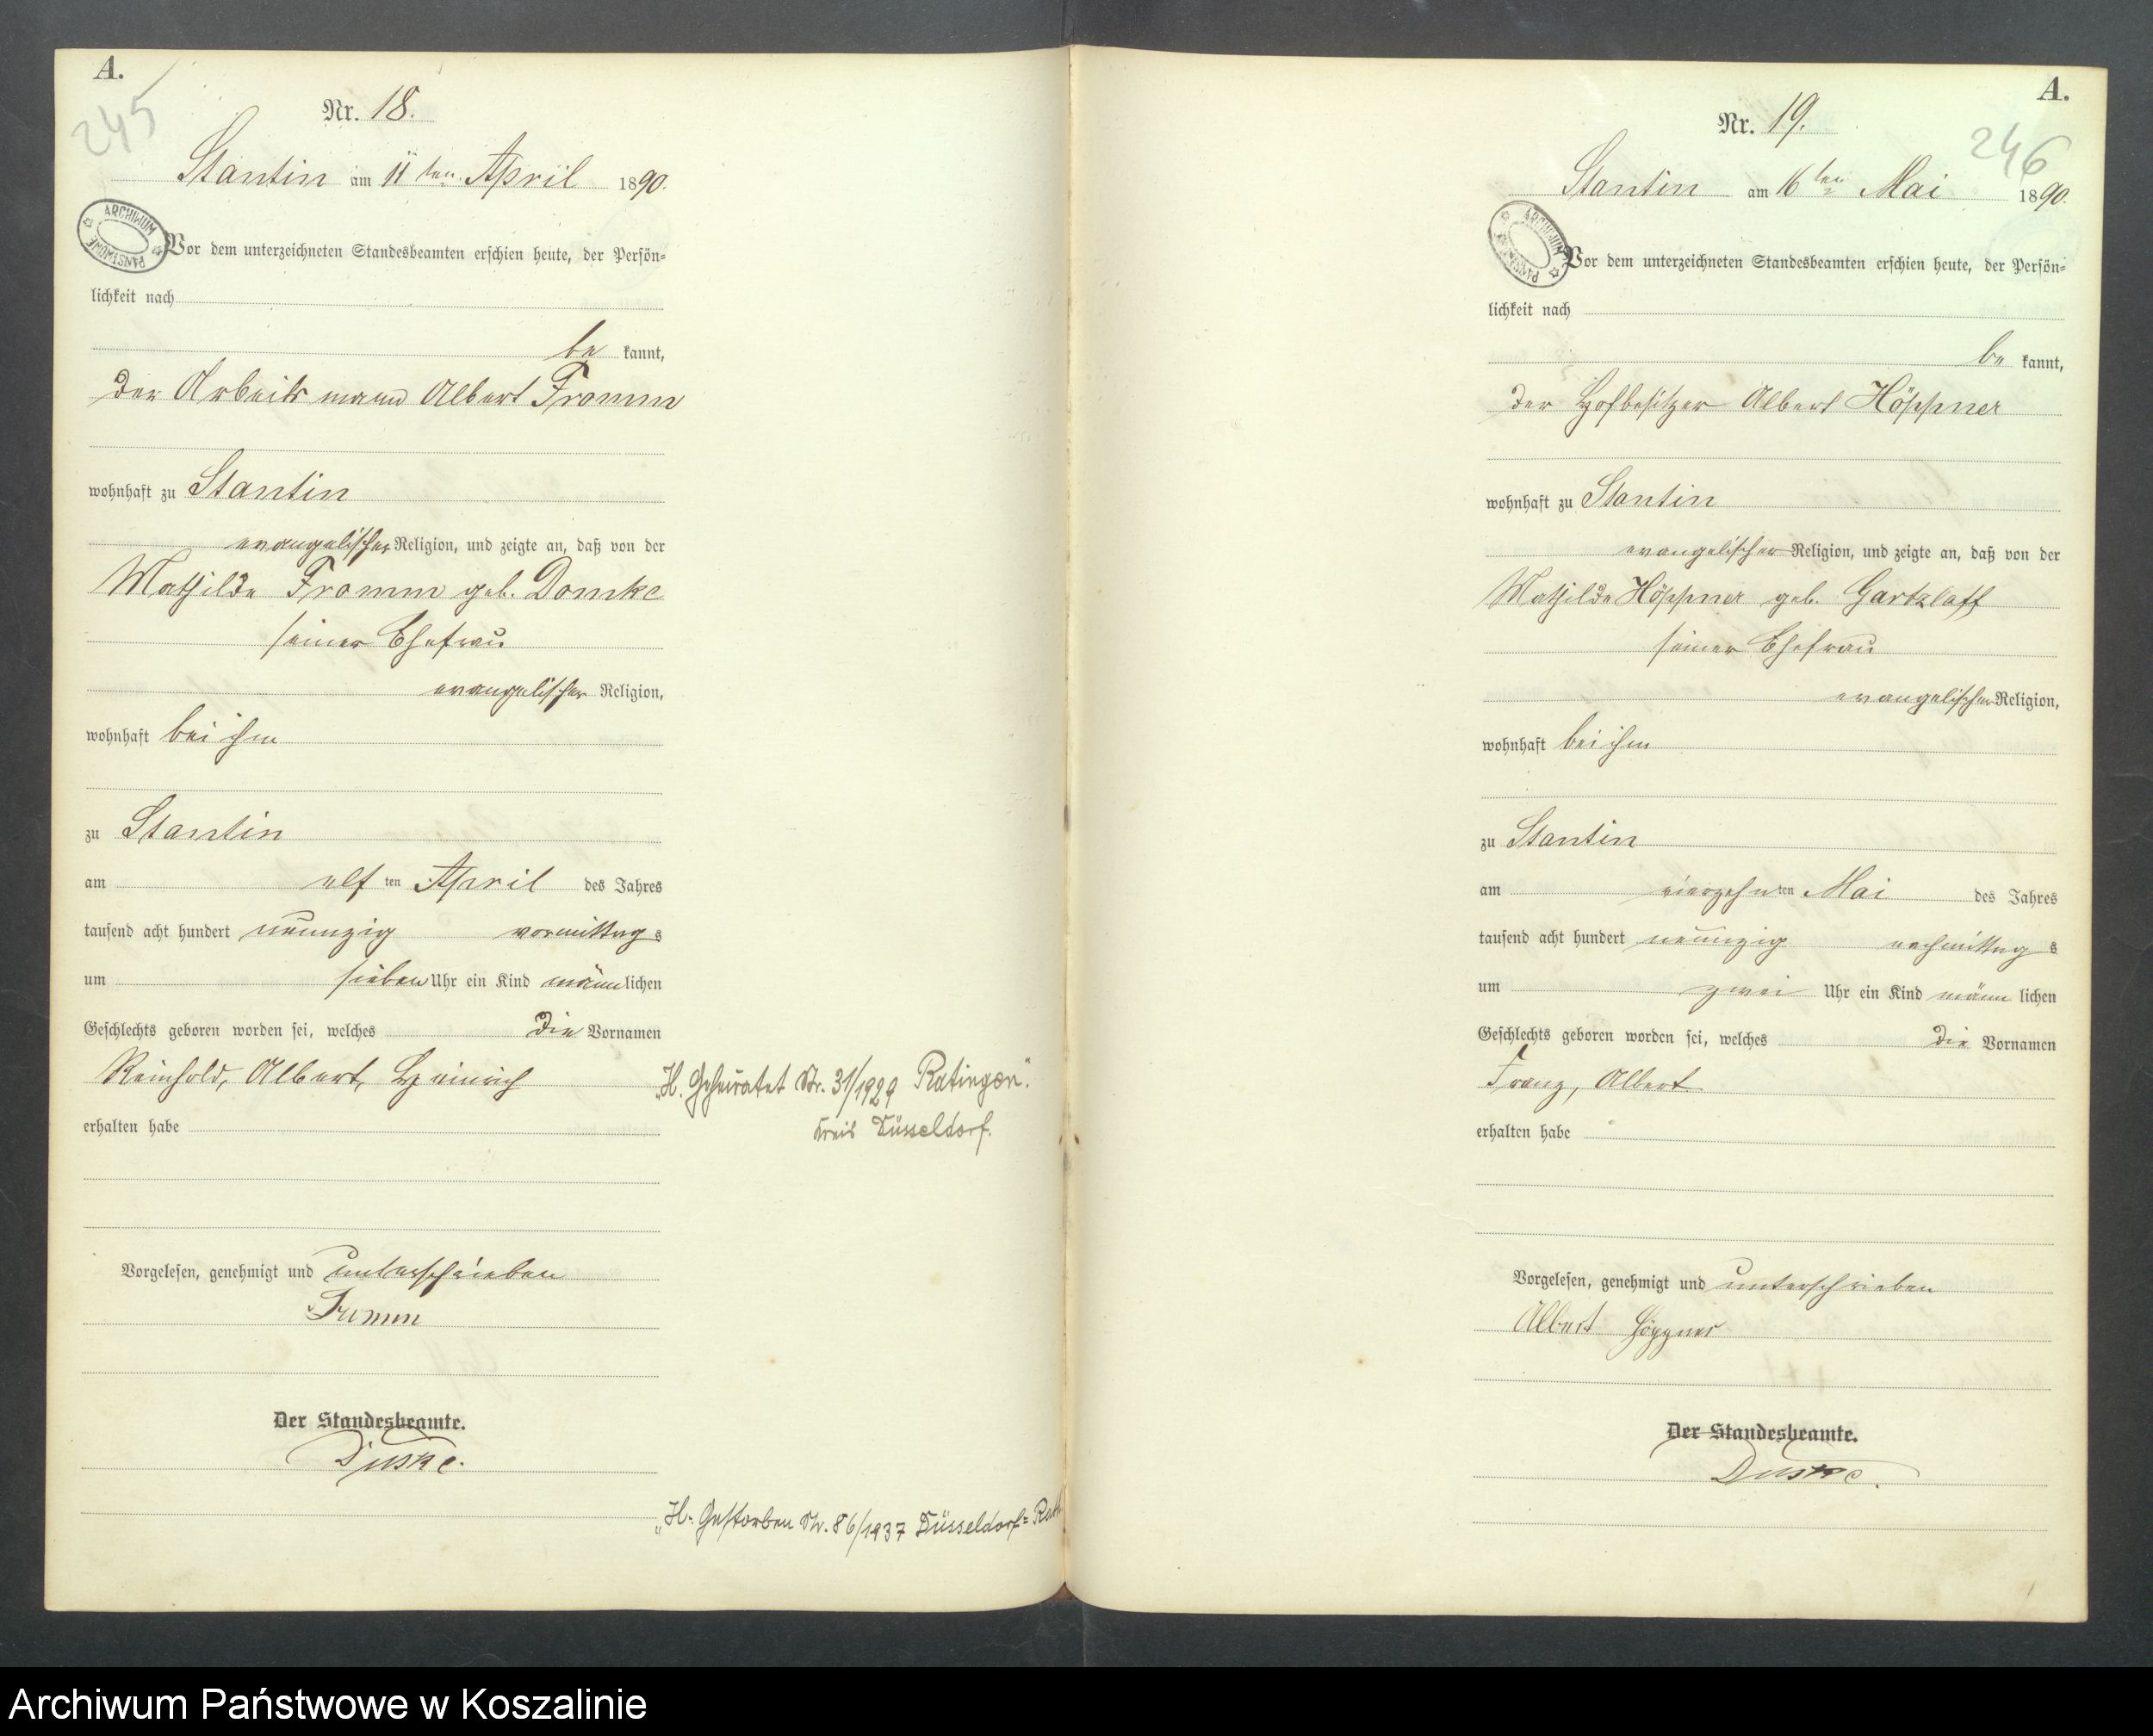 A.
245
Nr. 18.
Stantin am 11ten April 1890.
ARCHIWUM PAŃSTWOWE
Vor dem unterzeichneten Standesbeamten erschien heute, der Persön-
lichkeit nach
be kannt,
der Arbeitsmann Albert Fromm
wohnhaft zu Stantin
evangelischer Religion, und zeigte an, daß von der
Mathilde Fromm geb. Domke
seiner Ehefrau
evangelischer Religion,
wohnhaft bei ihm
zu Stantin
am elf ten April des Jahres
tausend acht hundert neunzig vormittag s
um sieben Uhr ein Kind männlichen
Geschlechts geboren worden sei, welches die Vornamen
Reinhold, Albert, Heinrich
erhalten habe
„H. Geheiratet Nr. 31/1929 Ratingen".
Kreis Düsseldorf.
Vorgelesen, genehmigt und unterschrieben
Fromm
Der Standesbeamte.
Duske.
„H. Gestorben Nr. 86/1937 Düsseldorf=Rath
A.
246
Nr. 19.
Stantin am 16ten Mai 1890.
ARCHIWUM PAŃSTWOWE
Vor dem unterzeichneten Standesbeamten erschien heute, der Persön-
lichkeit nach
be kannt,
der Hofbesitzer Albert Höppner
wohnhaft zu Stantin
evangelischer Religion, und zeigte an, daß von der
Mathilde Höppner geb. Gartzlaff
seiner Ehefrau
evangelischer Religion,
wohnhaft bei ihm
zu Stantin
am vierzehn ten Mai des Jahres
tausend acht hundert neunzig nachmittag s
um zwei Uhr ein Kind männ lichen
Geschlechts geboren worden sei, welches die Vornamen
Franz, Albert
erhalten habe
Vorgelesen, genehmigt und unterschrieben
Albert Höppner
Der Standesbeamte.
Duske.
Archiwum Państwowe w Koszalinie